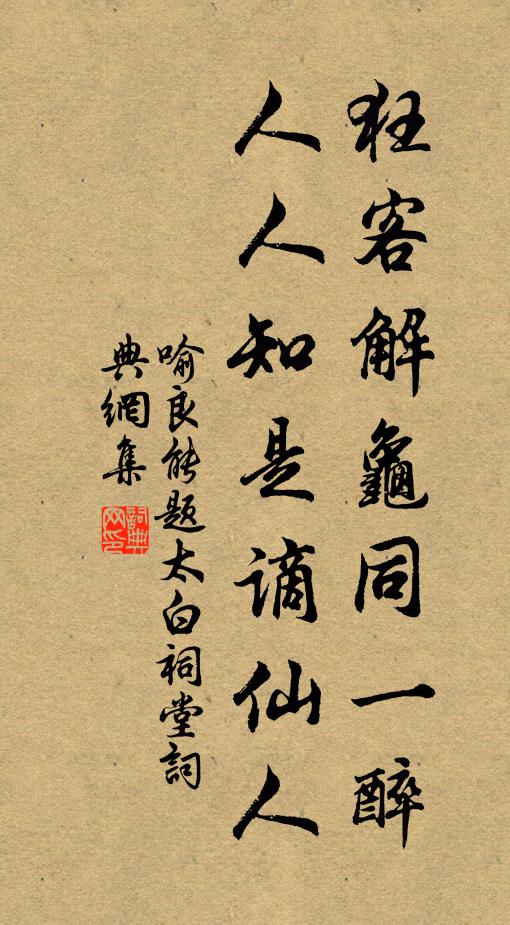 狂客解龜同一醉
人人知是謫仙人
喻良能題太白祠堂詞
典網集
詞典
网印